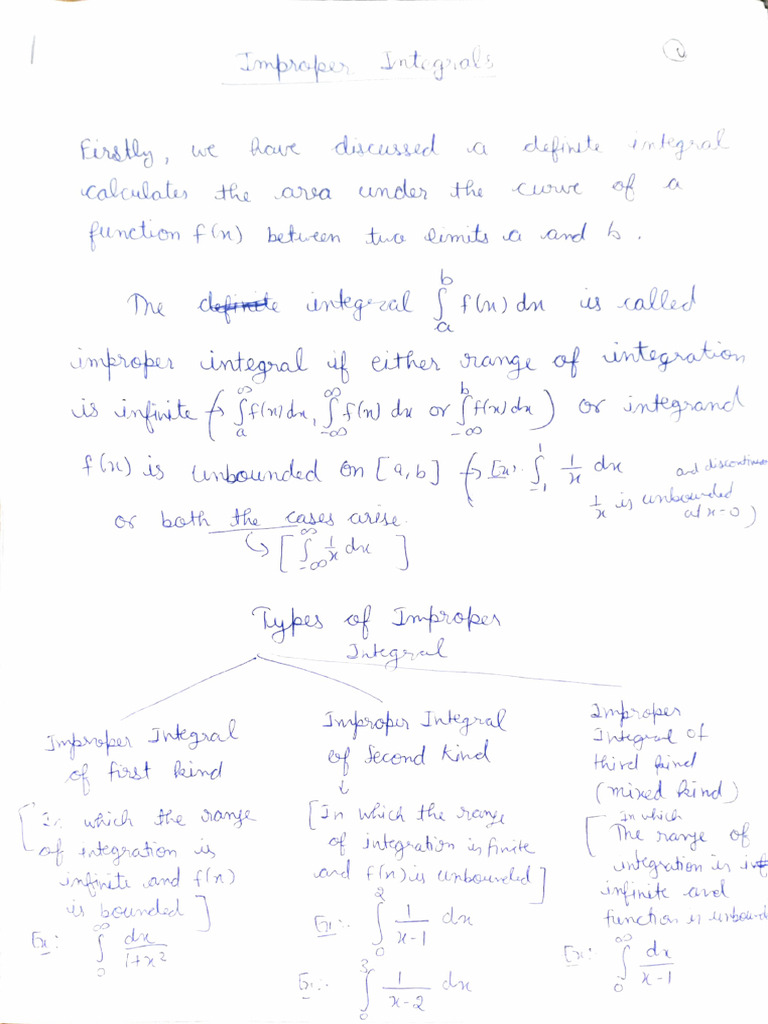 Improper Integrals
1
Firstly, we have discussed a definite integral
calculates the area under the curve of a
function f(x) between two limits a and b.
The definite integral ∫_a^b f(x) dx is called
improper integral if either range of integration
is infinite (→ ∫_a^∞ f(x) dx, ∫_{-∞}^∞ f(x) dx or ∫_{-∞}^b f(x) dx) or integrand
f(x) is unbounded on [a,b] (→ Ex:. ∫_{-1}^1 1/x dx and discontinuous
1/x is unbounded
at x=0)
or both the cases arise.
↳ [∫_{-∞}^∞ 1/x dx]
Types of Improper
Integral
Improper Integral
of first kind
[In which the range
of integration is
infinite and f(x)
is bounded]
Ex: ∫_0^∞ dx/(1+x²)
Improper Integral
of Second Kind
↓
[In which the range
of integration is finite
and f(x) is unbounded]
Ex:. ∫_0^2 1/(x-1) dx
Ex:. ∫_0^3 1/(x-2) dx
Improper
Integral of
third kind
(mixed kind)
[In which
The range of
integration is
infinite and
function is unbound
Ex: ∫_0^∞ dx/(x-1)